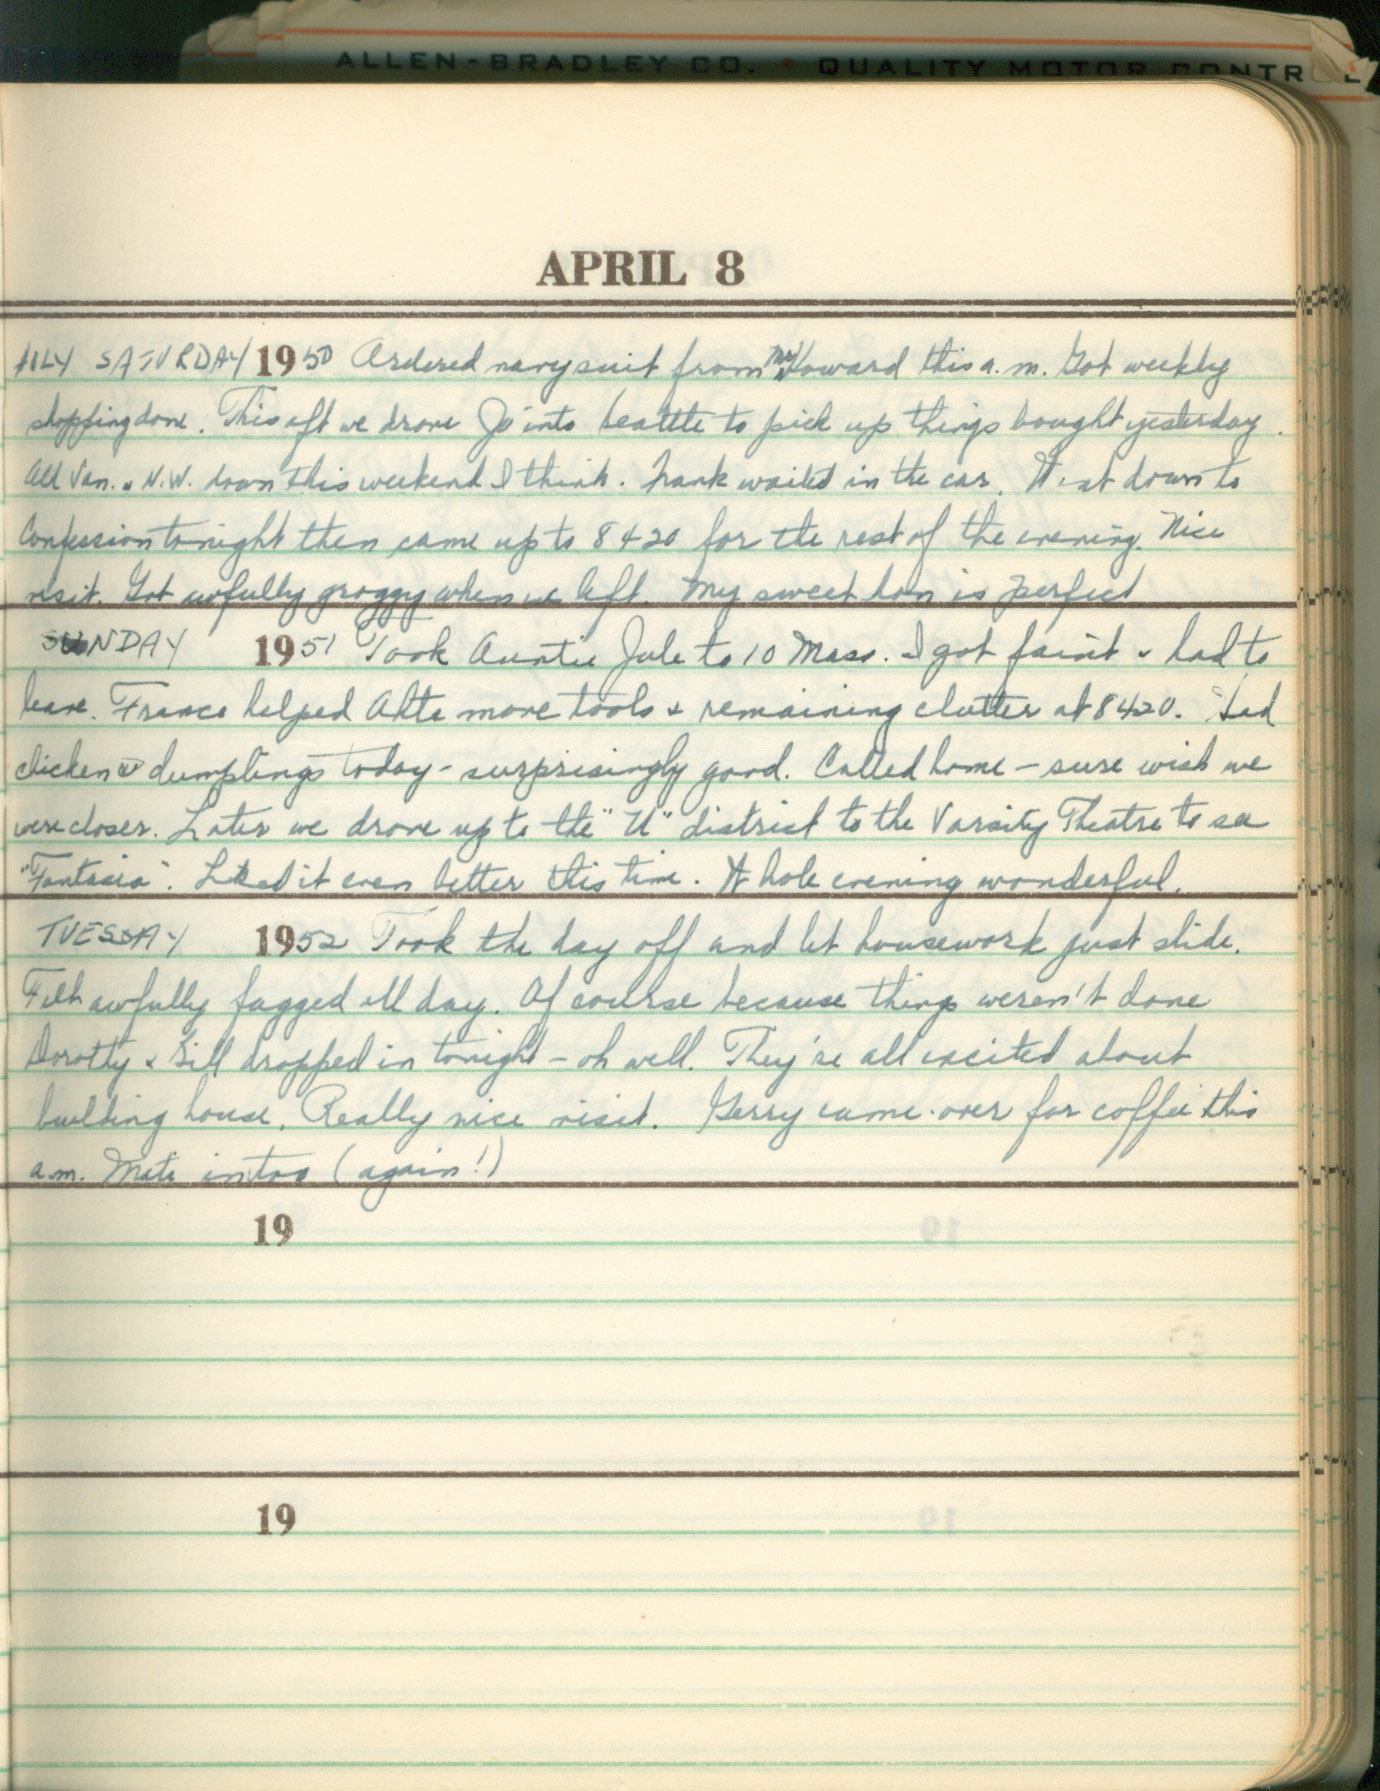 ALLEN-BRADLEY CO. • QUALITY MOTOR CONTROL
APRIL 8
HOLY SATURDAY 1950 Ordered navy suit from Mr. Howard this a.m. Got weekly
shopping done. This aft we drove Jo into Seattle to pick up things bought yesterday.
All Van. & N.W. down this weekend I think. Frank waited in the car. Went down to
Confession tonight then came up to 8420 for the rest of the evening. Nice
visit. Got awfully groggy when we left. My sweet hon is perfect
SUNDAY 1951 Took Auntie Jule to 10 Mass. I got faint & had to
leave. France helped move tools & remaining clutter at 8420. Had
chicken & dumplings today - surprisingly good. Called home - sure wish we
were closer. Later we drove up to the "U" district to the Varsity Theatre to see
"Fantasia". Liked it even better this time. Whole evening wonderful.
TUESDAY 1952 Took the day off and let housework just slide.
Felt awfully fagged all day. Of course because things weren't done
Dorothy & Bill dropped in tonight - oh well. They're all excited about
building house. Really nice visit. Gerry came over for coffee this
a.m. in too (again!)
19
19